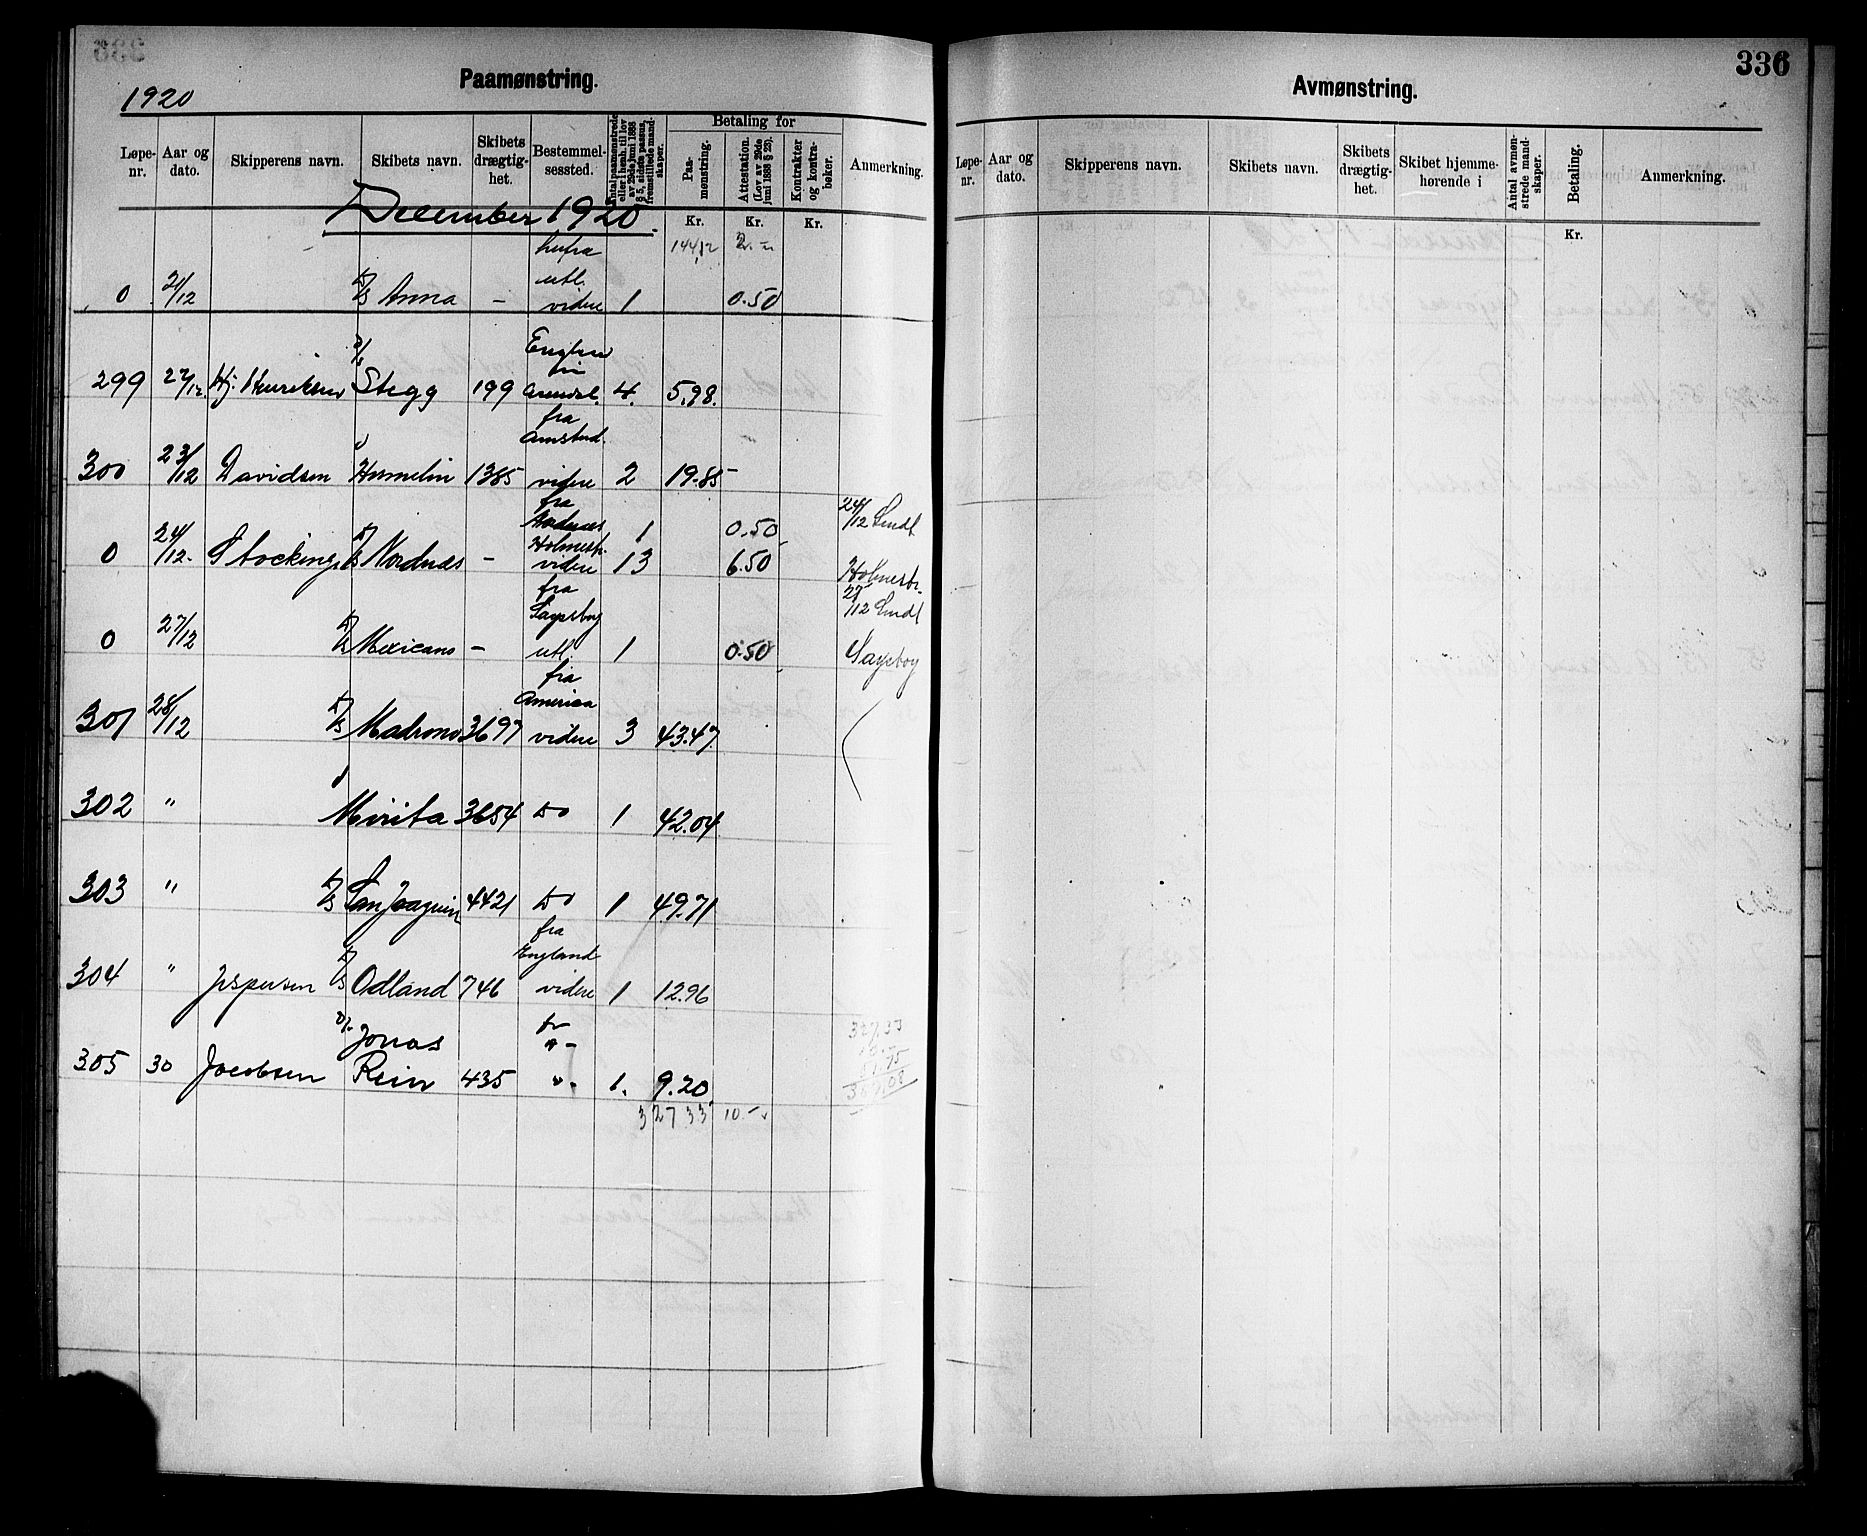 336
1920
Paamønstring.
Løpe-nr.
Aar og dato.
Skipperens navn.
Skibets navn.
Skibets drægtig-het.
Bestemmel-sessted.
Antal paamønstrede eller i henh. til lov av 29de juni 1888 § 5, sidste passus, fremstillede mand-skaper.
Betaling for
Paa-mønstring.
Attestation. (Lov av 29de juni 1888 § 25).
Kontrakter og kontra-bøker.
Anmerkning.
December 1920
Kr. Kr. Kr.
144,12 2.-
herfra
utl.
0 21/12 D/S Anna - videre 1 0.50
D/S England
299 22/12. Hj. Henriksen Stegg 199 Arendal. 4. 5.98.
fra
Amsterd.
300 23/12 Davidsen Hermelin 1385 videre 2 19.85
fra
Nordnæs 1 0.50 24/12 Sendt
Holmestr.
0 24/12. Stockinger D/S Nordnæs - videre 13 6.50 Holmestr.
fra 27/12 Sendt
Sarpsborg
0 27/12 D/S Mexicano - utl. 1 0.50 Sarpsborg
fra
America
301 28/12 D/S Madrono 3697 videre 3 43.47
302 " Mirita 3654 Do 1 42.04
303 " D/S San Joaquin 4421 Do 1 49.71
fra
England
304 " Jespersen D/S Odland 746 videre 1 12.96
D/S Jonas fr
" -
305 30 Jacobsen Rein 435 " - 1. 9.20
327 33 10.-
Avmønstring.
Løpe-nr.
Aar og dato.
Skipperens navn.
Skibets navn.
Skibets drægtig-het.
Skibet hjemme-hørende i
Antal avmøn-strede mand-skaper.
Betaling.
Anmerkning.
Kr.